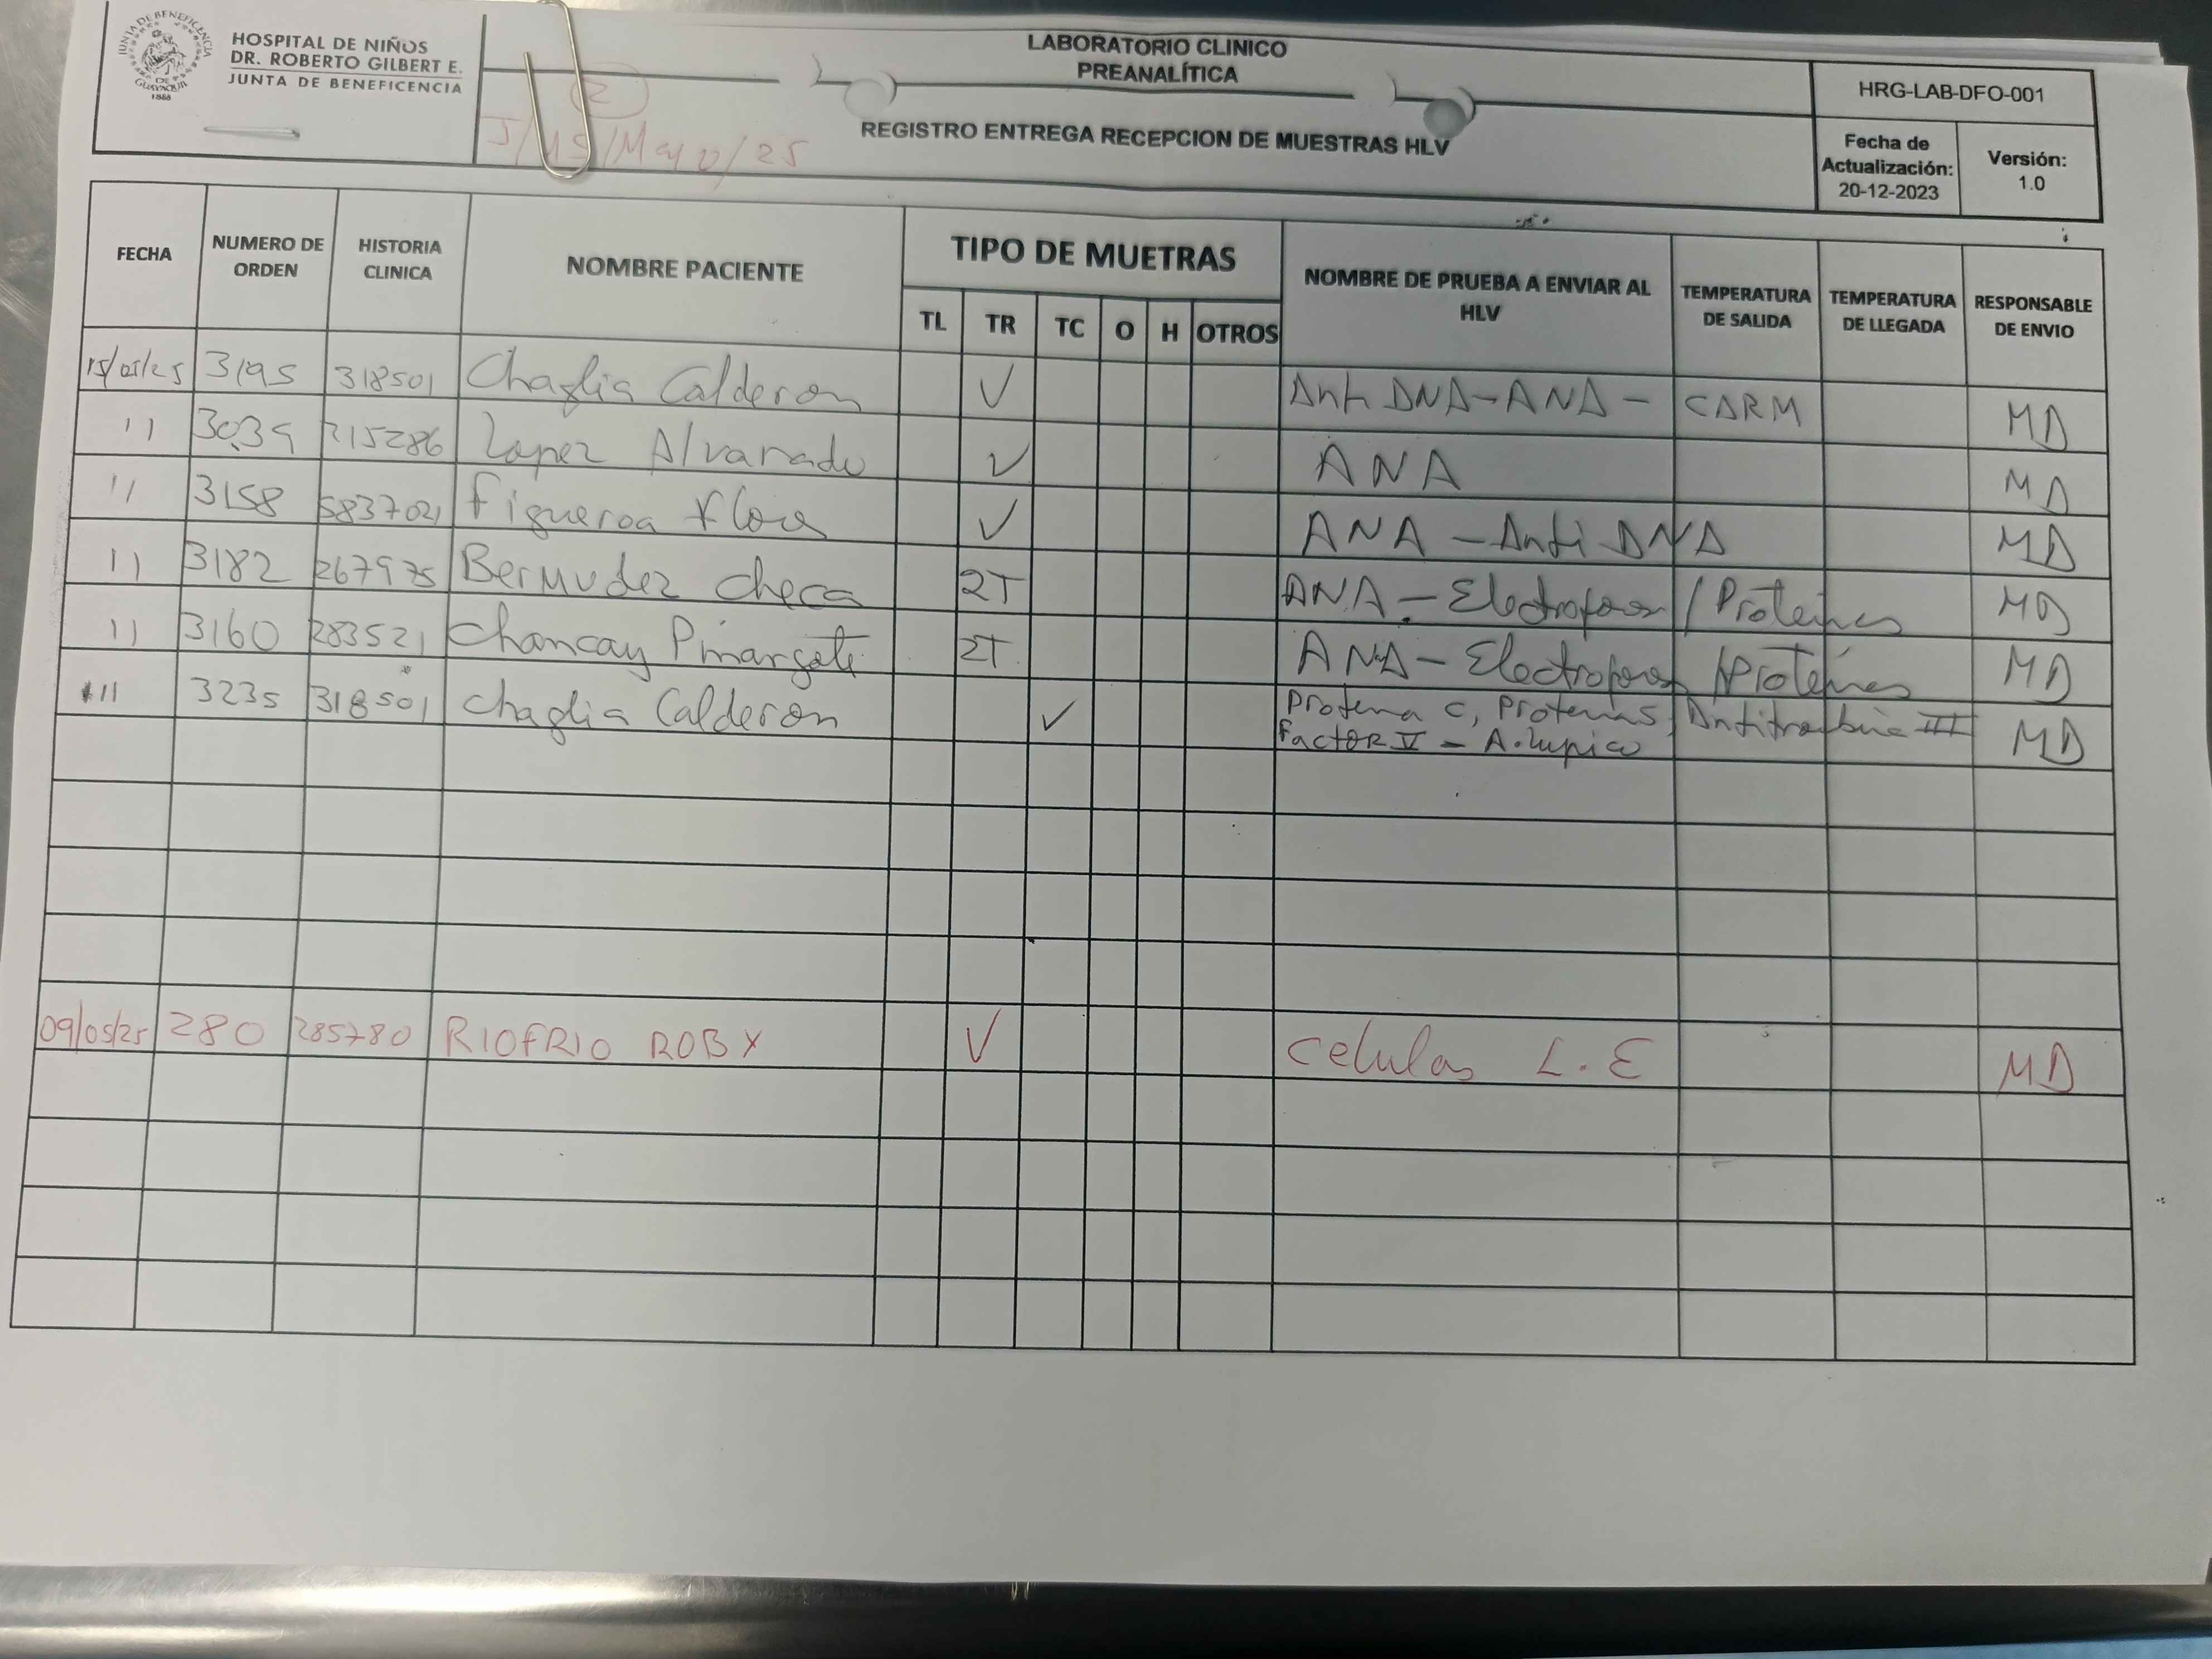 JUNTA DE BENEFICENCIA DE GUAYAQUIL 1888
HOSPITAL DE NIÑOS
DR. ROBERTO GILBERT E.
JUNTA DE BENEFICENCIA
2
J/15/Mayo/25
LABORATORIO CLINICO
PREANALÍTICA
REGISTRO ENTREGA RECEPCION DE MUESTRAS HLV
HRG-LAB-DFO-001
Fecha de Actualización: 20-12-2023
Versión: 1.0
FECHA NUMERO DE ORDEN HISTORIA CLINICA NOMBRE PACIENTE TIPO DE MUETRAS NOMBRE DE PRUEBA A ENVIAR AL HLV TEMPERATURA DE SALIDA TEMPERATURA DE LLEGADA RESPONSABLE DE ENVIO
TL TR TC O H OTROS
15/05/25 3195 318501 Chaglia Calderon ✓ Anti DNA-ANA- CARM MD
11 3039 215286 Lopez Alvarado ✓ ANA MD
11 3158 Figueroa Flores ✓ ANA - Anti DNA MD
11 3182 267975 Bermudez Checa 2T ANA - Electrofores / Proteines MD
11 3160 283521 Chancay Pinargote 2T ANA - Electrofores / Proteines MD
11 3235 318501 Chaglia Calderon ✓ Proteina C, Proteina S, Antitrombina III
Factor V - A. Lupico MD
09/05/25 280 285780 RIOFRIO ROBY ✓ Celulas L.E MD